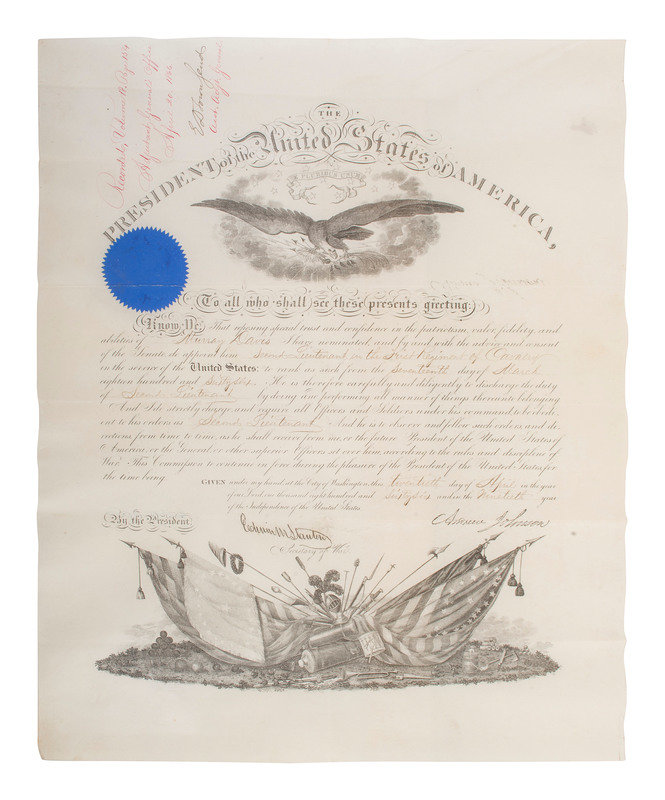 Recorded, Volume
Adjutant General's Office
April 20 1866
E D Townsend
Asst. Adjt. General
THE
PRESIDENT of the United States of AMERICA,
E PLURIBUS UNUM
To all who shall see these presents greeting:
Know Ye, That reposing special trust and confidence in the patriotism, valor, fidelity, and
abilities of Murray Davis I have nominated, and by and with the advice and consent
of the Senate do appoint him Second Lieutenant in the First Regiment of Cavalry
in the service of the United States: to rank as such from the Seventeenth day of March
eighteen hundred and sixty six. He is therefore carefully and diligently to discharge the duty
of Second Lieutenant by doing and performing all manner of things thereunto belonging.
And I do strictly charge, and require all Officers and Soldiers under his command to be obedi-
ent to his orders as Second Lieutenant. And he is to observe and follow such orders, and di-
rections from time to time, as he shall receive from me, or the future President of the United States of
America, or the General or other superior Officers set over him, according to the rules and discipline of
War. This Commission to continue in force during the pleasure of the President of the United States for
the time being.
GIVEN under my hand, at the City of Washington, this twentieth day of April in the year
of our Lord one thousand eight hundred and sixty six and in the Ninetieth year
of the Independence of the United States.
By the President
Andrew Johnson
Edwin M Stanton
Secretary of War.